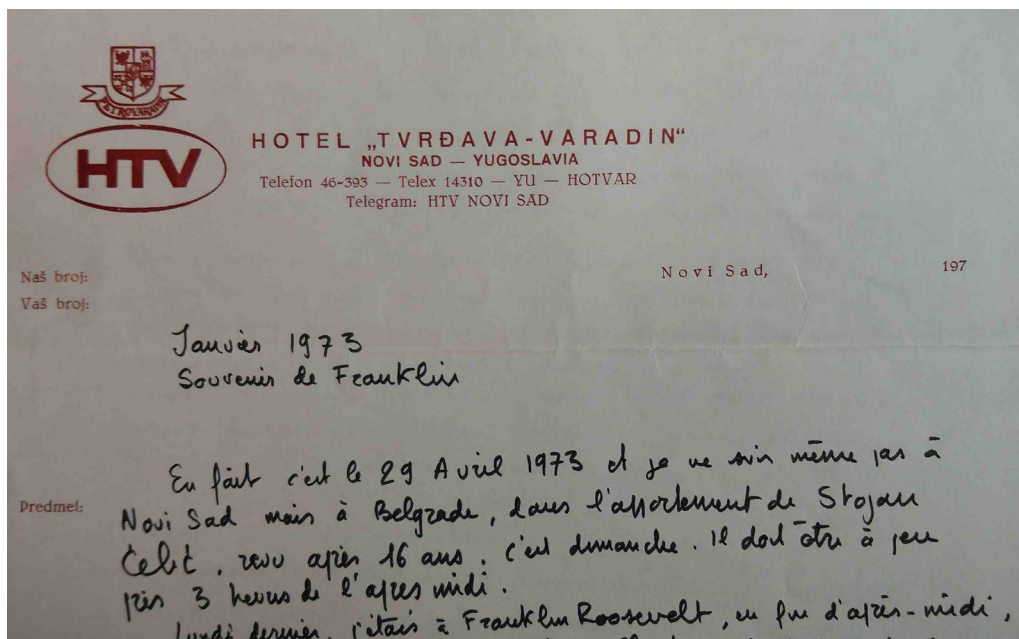 PETROVARADIN
HTV
HOTEL „TVRĐAVA-VARADIN“
NOVI SAD — YUGOSLAVIA
Telefon 46-393 — Telex 14310 — YU — HOTVAR
Telegram: HTV NOVI SAD
Naš broj:
Vaš broj:
Novi Sad, 197
Janvier 1973
Souvenir de Franklin
En fait c'est le 29 Avril 1973 et je ne suis même pas à
Predmet:
Novi Sad mais à Belgrade, dans l'appartement de Stojan
Čelić, revu après 16 ans. c'est dimanche. Il doit être à peu
près 3 heures de l'après midi.
Lundi dernier, j'étais à Franklin Roosevelt, en fin d'après-midi,